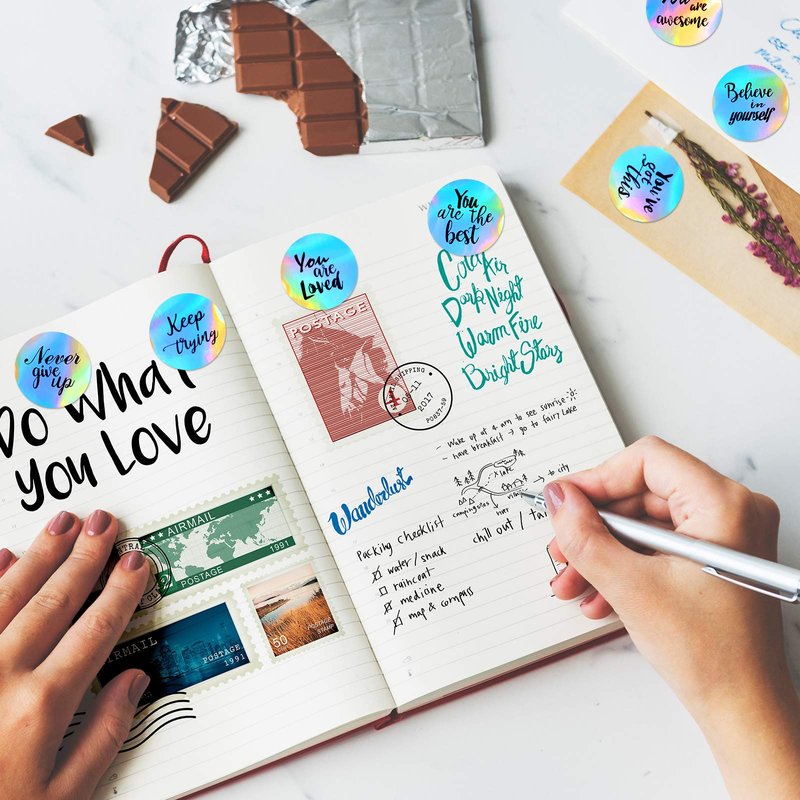 are
awesome
Believe
in
yourself
You've
got
this
You
are the
best
You
are
Loved
Keep
trying
Never
give
up
Do What
you Love
AIRMAIL
POSTAGE
1991
AIRMAIL
POSTAGE
1991
50
POSTAGE
STAMP
POSTAGE
SHIPPING
2017
Cold Air
Dark Night
Warm Fire
Bright Stars
- Wake up at 4 am to see sunrise
- have breakfast → go to fairy Lake
lake
→ to city
campingsites
river
Wanderlust
chill out /
Packing Checklist
water/snack
raincoat
medicine
map & compass